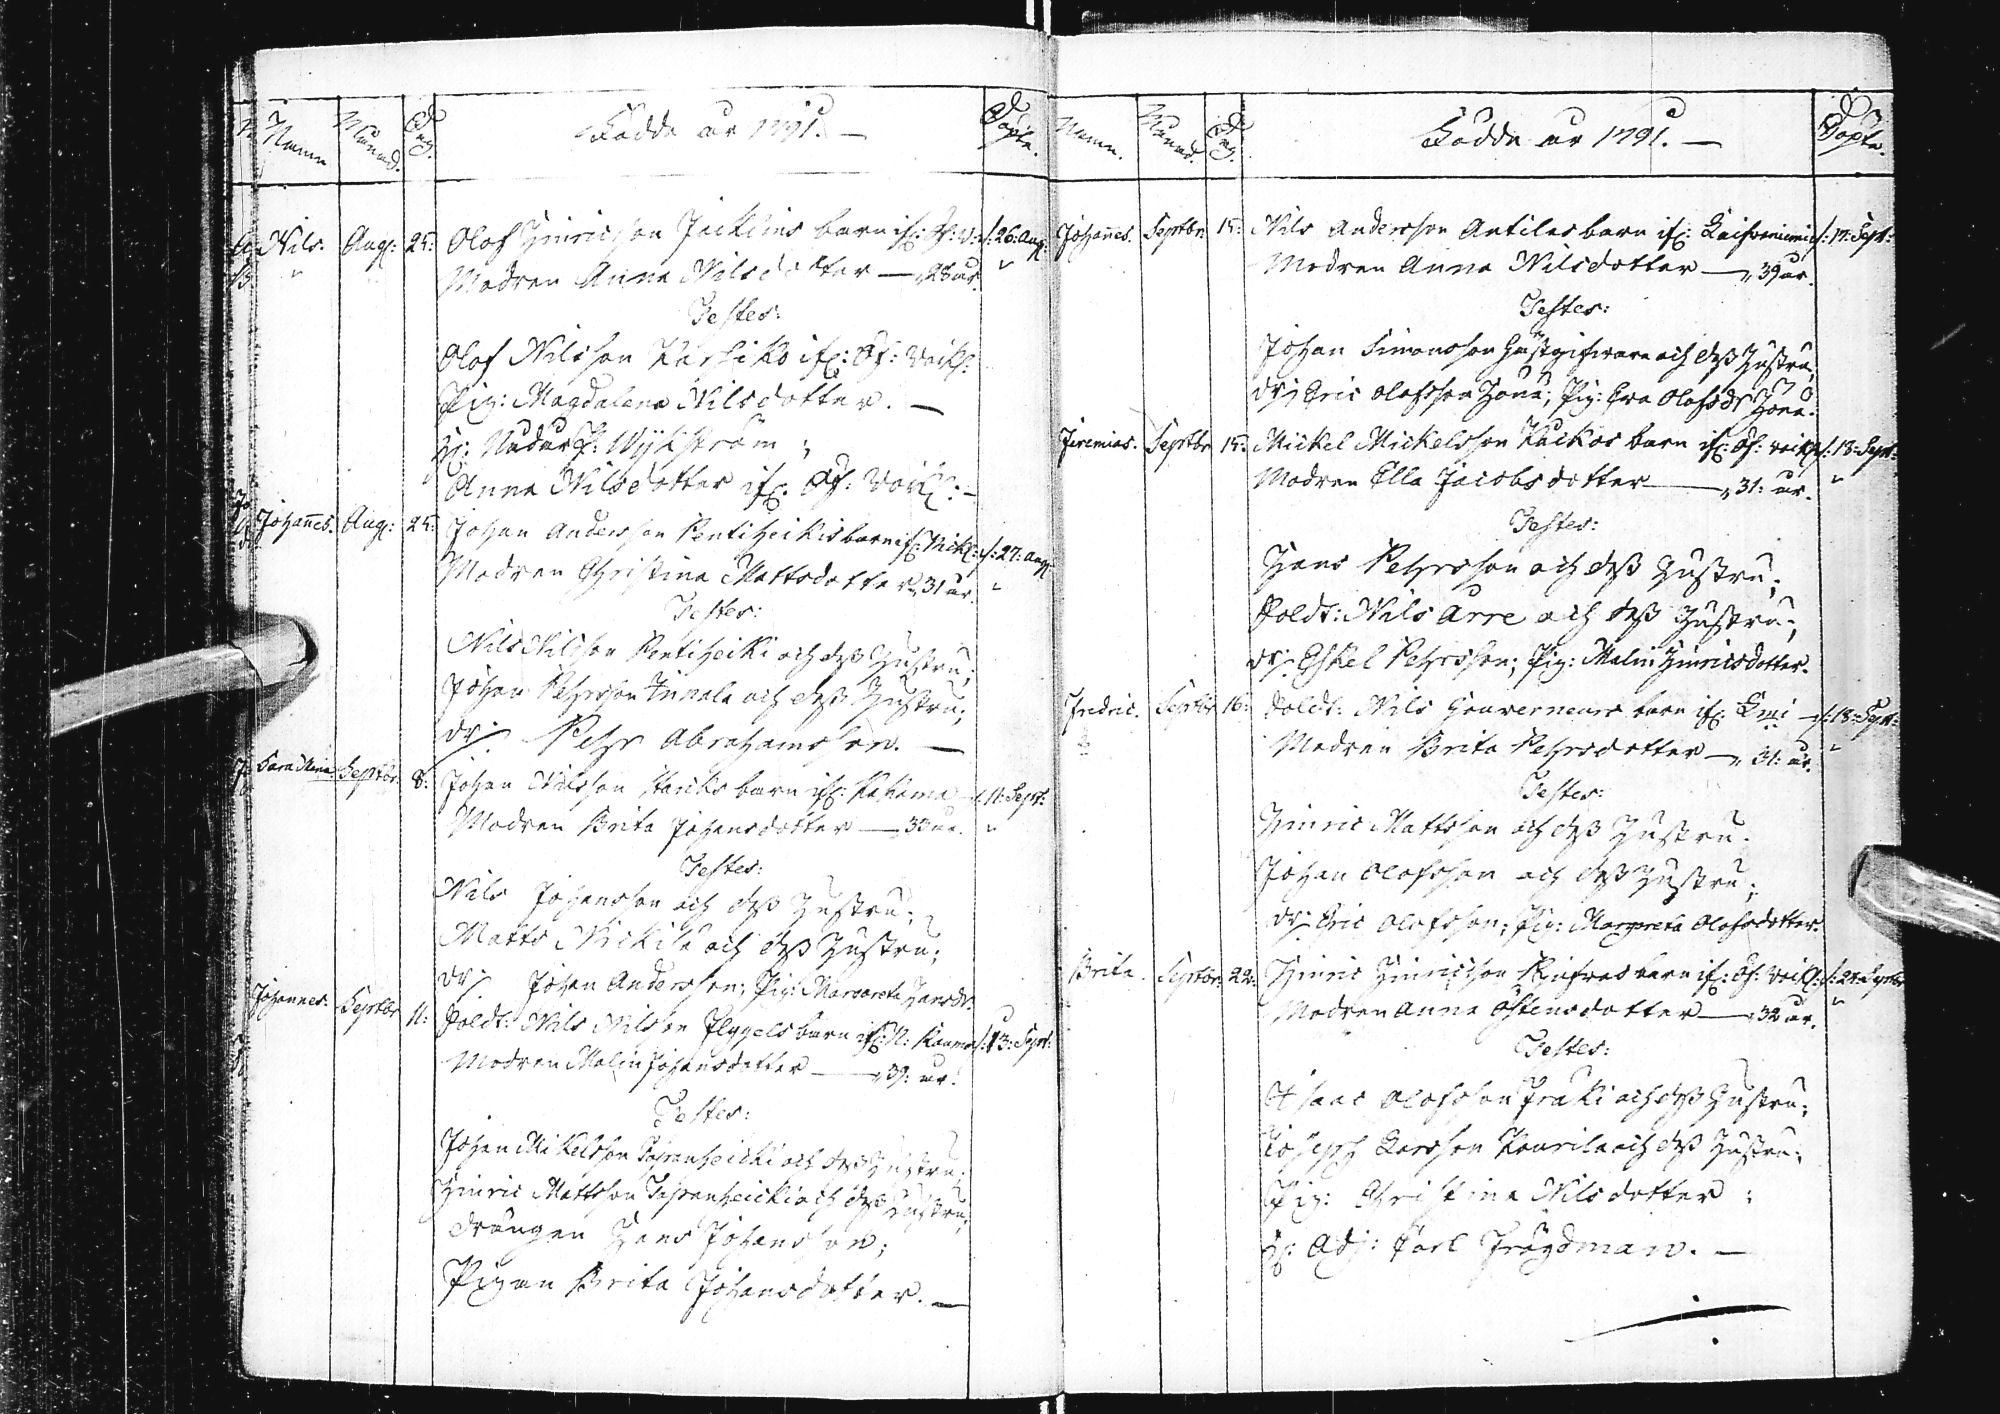 Namn Månad. Dag. Födde år 1791. — Döpte.
Nils. Aug: 25: Olof Hinricsson Jicklins barn if: Öf: V: d: 26: Aug:
Modren Anna Nilsdotter — 28 år.
Testes:
Olof Nilsson Karsiko if: Öf: Voik:
Pig: Magdalena Nilsdotter. —
H: Wykström;
Anna Nilsdotter if: Öf: Voik: —
Johannes. Aug: 25: Johan Andersson Pentiheikis barn if: Nick: d: 27: Aug:
Modren Christina Mattsdotter 31 år.
Testes:
Nils Nilsson Pentiheiki och dess Hustru;
Johan Pehrsson Innala och dess Hustru;
dr: Pehr Abrahamsson. —
Sara Maria Septbr: 8: Johan Nilsson barn if: Kakama d: 11: Sept:
Modren Brita Johansdotter — 33 år.
Testes:
Nils Johansson och dess Hustru;
Matts Nickila och dess Hustru;
dr: Johan Andersson; Pig: Margareta Hansdr.
Johannes. Septbr 11: Soldt: Nils Nilsson Flygels barn if: N: Raumo d: 13: Sept:
Modren Malin Johansdotter — 39: år.
Testes:
Johan Mickelsson och dess Hustru;
Hinric Mattsson och dess Hustru;
Drängen Hans Johansson;
Pigan Brita Johansdotter. —
Namn. Månad. Dag. Födde år 1791. — Döpte.
Johannes. Septbr: 15: Nils Andersson Antilas barn if: Laivaniemi d: 17: Sept:
Modren Anna Nilsdotter — 39 år.
Testes:
Johan Simonsson Gästgifvare och dess Hustru,
dr: Eric Olofsson; Pig: Eva Olofsdr
Jeremias. Septbr 15: Mickel Mickelsson Kuckos barn if: Öf: Voik: d: 18: Sept:
Modren Ella Jacobsdotter — 31: år.
Testes:
Hans Pehrsson och dess Hustru;
Soldt: Nils Arre och dess Hustru;
dr: Eskel Pehrsson; Pig: Malin Hinricsdotter.
Fredric. Septbr 16: Soldt: Nils Gouverneurs barn if: Kmi — d: 18: Sept:
Modren Brita Pehrsdotter — 31: år.
Testes:
Hinric Mattsson och dess Hustru.
Johan Olofsson och dess Hustru;
dr: Eric Olofsson; Pig: Margreta Olofsdotter.
Brita. Septbr: 22: Hinric Hinricsson barn if: Öf: Voik: d: 24: Septbr
Modren Anna Östensdotter — 32 år.
Testes:
Isaac Olofsson Fraki och dess Hustru;
Joseph Larsson Kaurila och dess Hustru;
Pig: Christina Nilsdotter;
H: Adj: Carl Frögdman. —